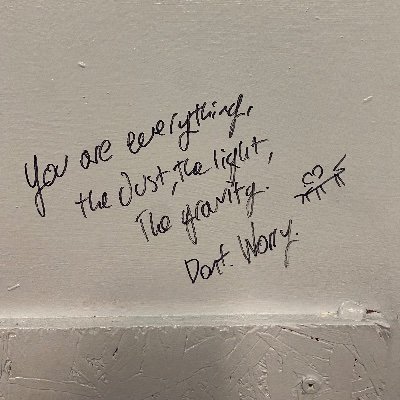 You are everything,
the dust, the light,
The gravity.
Dont. Worry.